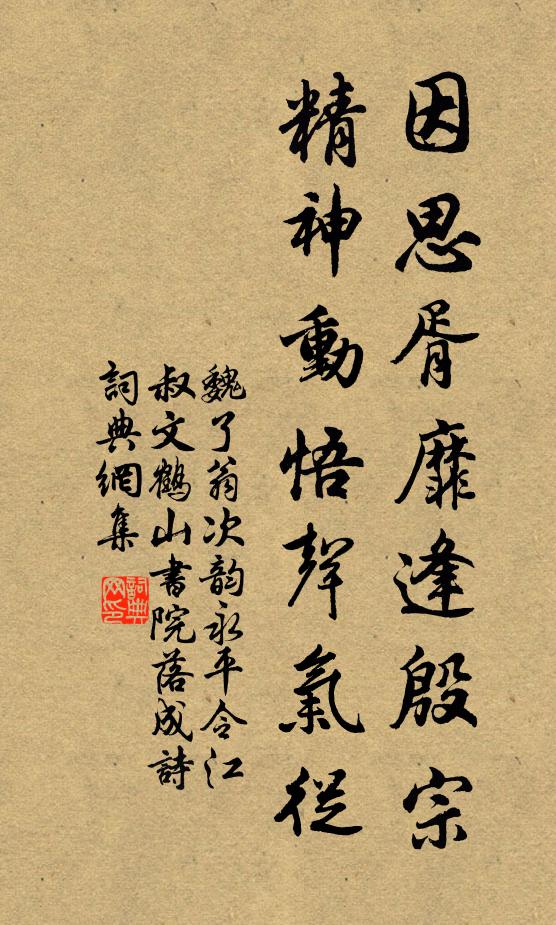 因思胥靡逢殷宗
精神動悟聲氣從
魏了翁次韵永平令江
叔文鶴山書院落成詩
詞典網集
詞典網印